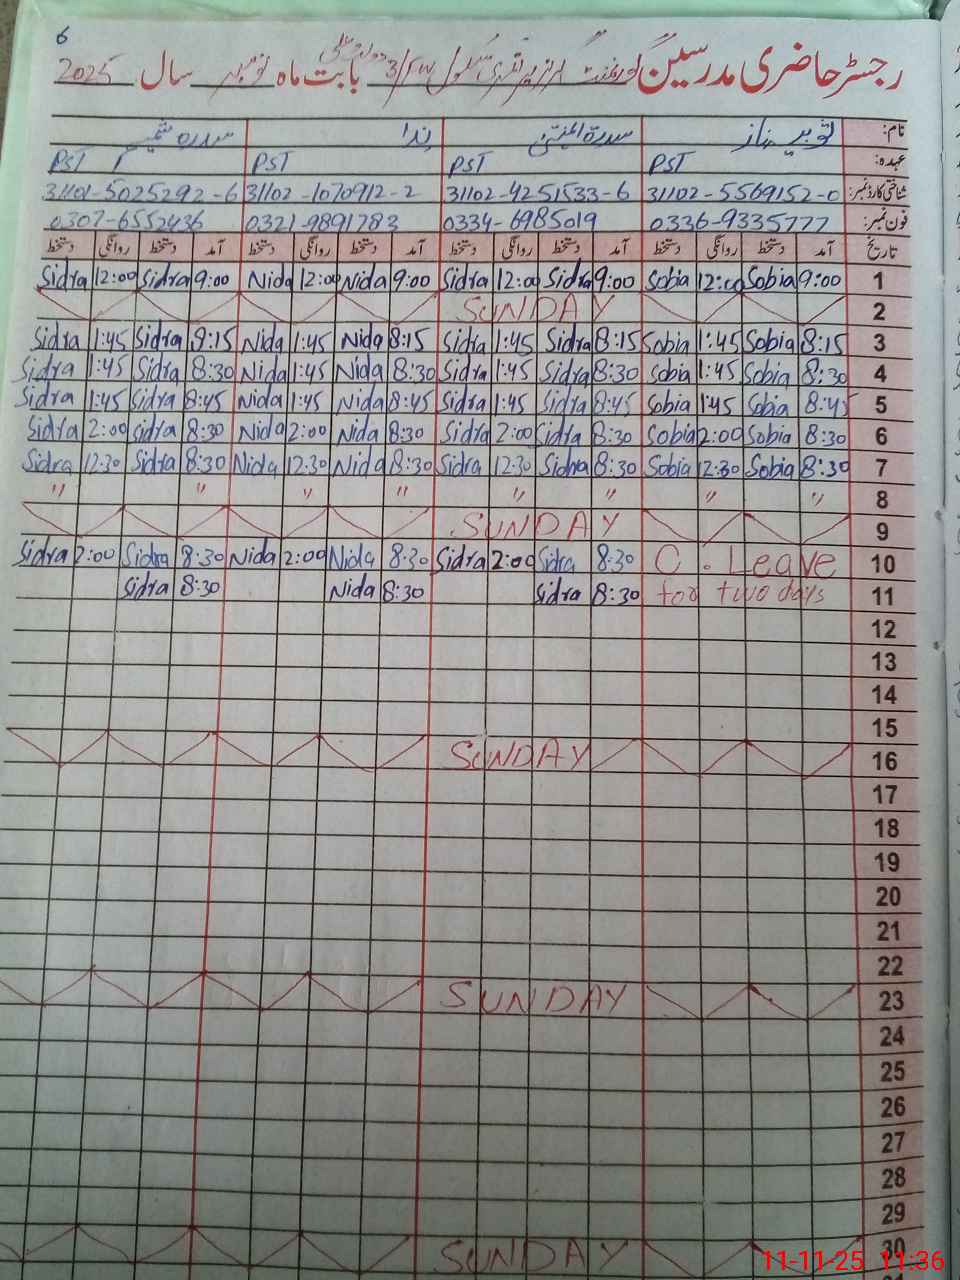 6
رجسٹر حاضری مدرسین گورنمنٹ گرلز پرائمری سکول 3/FW بابت ماہ نومبر سال 2025
نام: ثوبیہ ناز سدرۃ المنتہیٰ ندا سدرہ شمیم
عہدہ: PST PST PST PST
شناختی کارڈ نمبر: 31102-5569152-0 31102-4251533-6 31102-1070912-2 31101-5025292-6
فون نمبر: 0336-9335777 0334-6985019 0321-9891783 0307-6552436
تاریخ آمد دستخط روانگی دستخط آمد دستخط روانگی دستخط آمد دستخط روانگی دستخط آمد دستخط روانگی دستخط
Sidra 12:00 Sidra 9:00 Nida 12:00 Nida 9:00 Sidra 12:00 Sidra 9:00 Sobia 12:00 Sobia 9:00 1
SUNDAY 2
Sidra 1:45 Sidra 8:15 Nida 1:45 Nida 8:15 Sidra 1:45 Sidra 8:15 Sobia 1:45 Sobia 8:15 3
Sidra 1:45 Sidra 8:30 Nida 1:45 Nida 8:30 Sidra 1:45 Sidra 8:30 Sobia 1:45 Sobia 8:30 4
Sidra 1:45 Sidra 8:45 Nida 1:45 Nida 8:45 Sidra 1:45 Sidra 8:45 Sobia 1:45 Sobia 8:45 5
Sidra 2:00 Sidra 8:30 Nida 2:00 Nida 8:30 Sidra 2:00 Sidra 8:30 Sobia 2:00 Sobia 8:30 6
Sidra 12:30 Sidra 8:30 Nida 12:30 Nida 8:30 Sidra 12:30 Sidra 8:30 Sobia 12:30 Sobia 8:30 7
" " " " " " " " 8
SUNDAY 9
Sidra 2:00 Sidra 8:30 Nida 2:00 Nida 8:30 Sidra 2:00 Sidra 8:30 C. Leave 10
Sidra 8:30 Nida 8:30 Sidra 8:30 for two days 11
12
13
14
15
SUNDAY 16
17
18
19
20
21
22
SUNDAY 23
24
25
26
27
28
29
SUNDAY 30
11-11-25 11:36